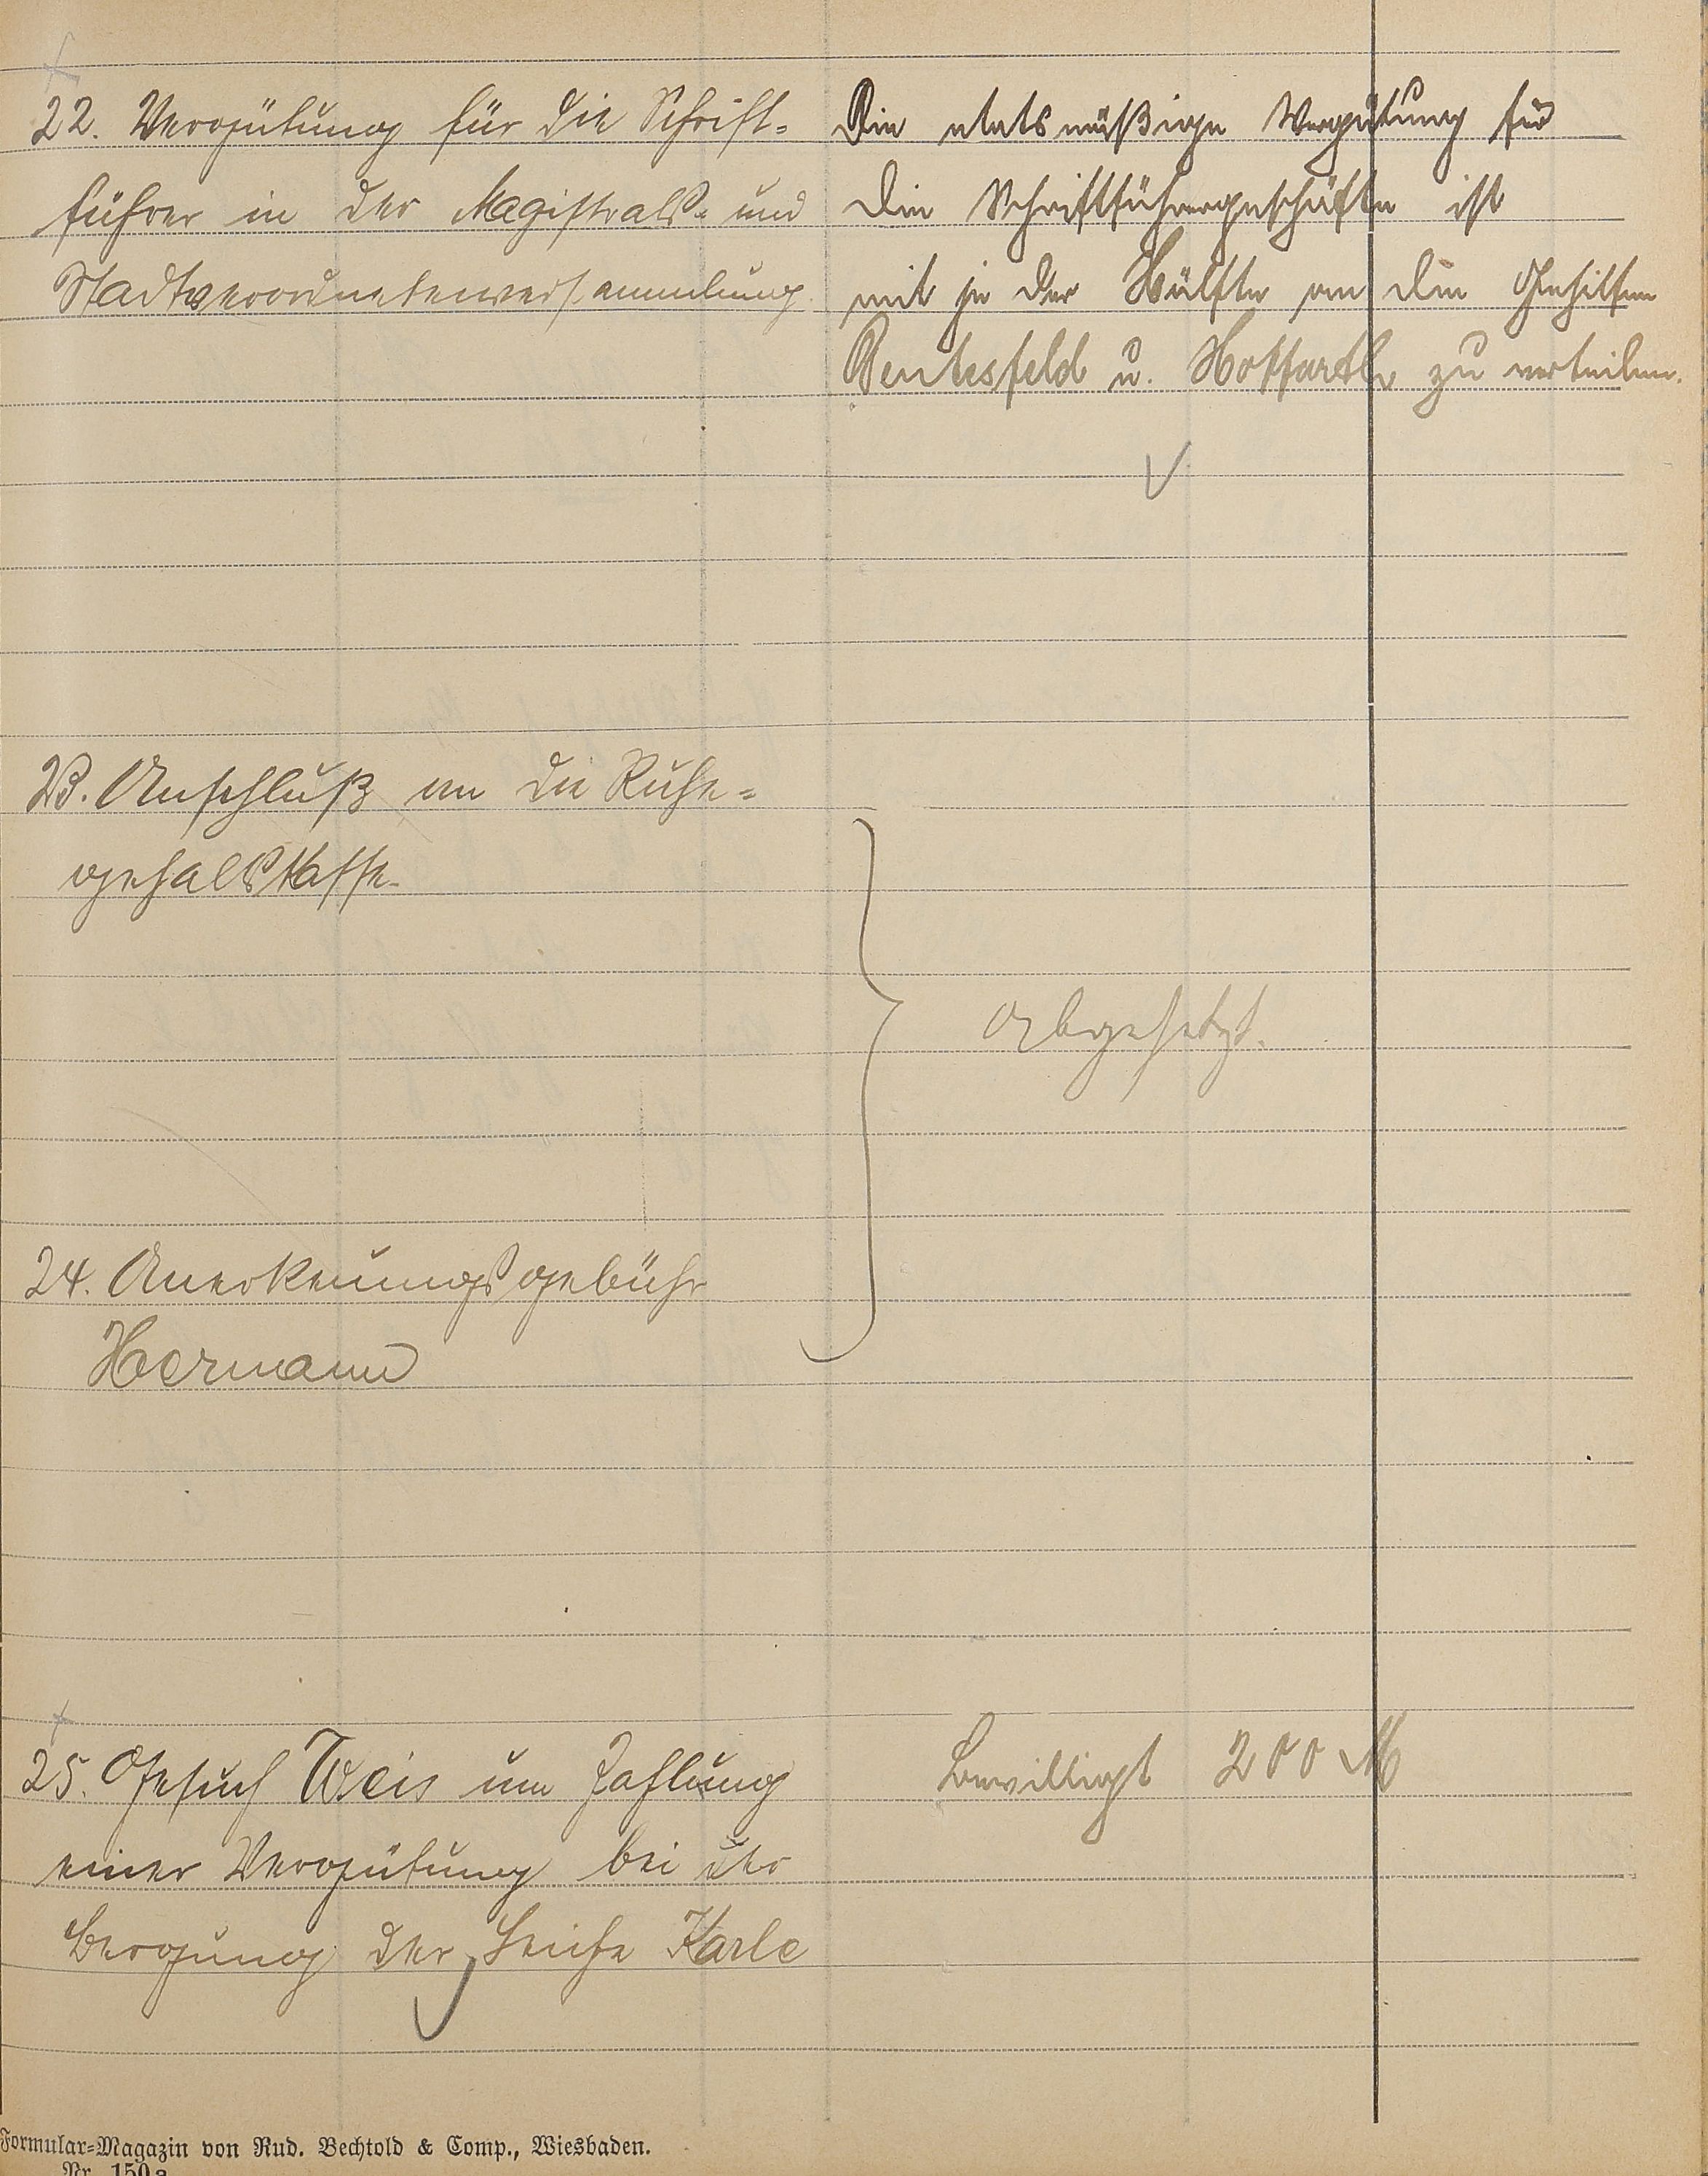 22. Vergütung für die Schrift-
führer in der Magistrats- und
Stadtverordnetenversammlung.
Die etatsmäßige Vergütung für
die Schriftführergeschäfte ist
mit je der Hälfte an die Gehilfen
Bentesfeld u. Hoffarth zu verteilen.
23. Anschluß an die Ruhe-
gehaltskasse.
Abgesetzt.
24. Anerkennungsgebühr
Hermann
25. Gesuch Weis um Zahlung
einer Vergütung bei der
Bergung der Leiche Karle
Bewilligt 200 M
Formular-Magazin von Rud. Bechtold & Comp., Wiesbaden.
Nr. 150a